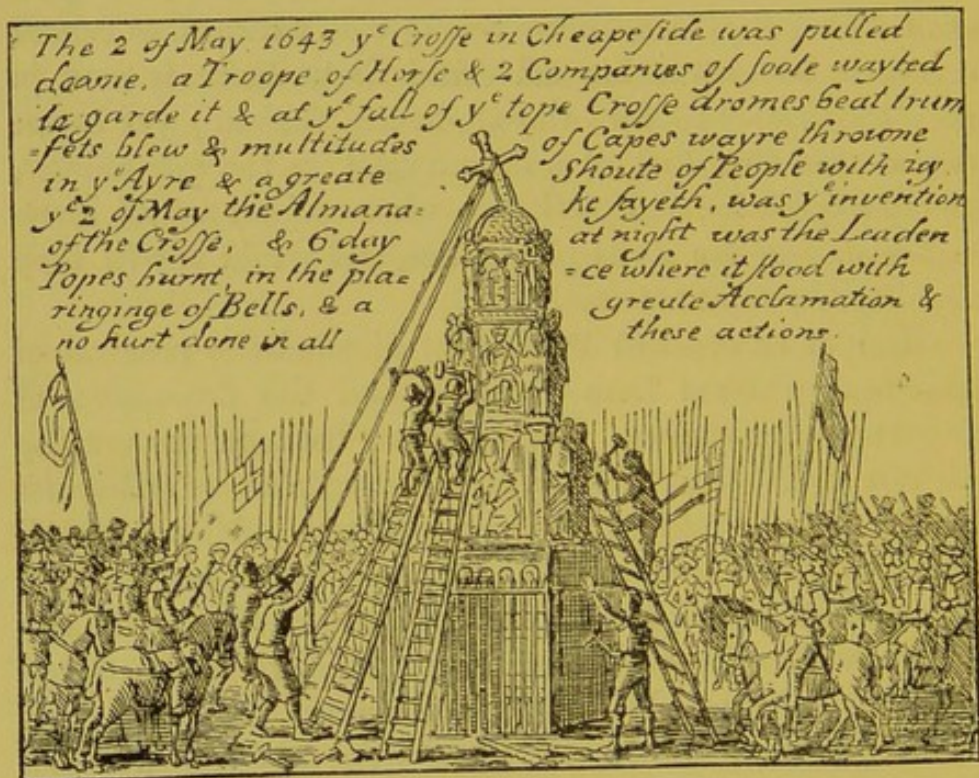 The 2 of May 1643 yᵉ Crosse in Cheapeside was pulled
downe, a Troope of Horse & 2 Companies of foote wayted
to garde it & at yᵉ fall of yᵉ tope Crosse dromes beat trum
=pets blew & multitudes of Capes wayre throwne
in yᵉ Ayre & a greate Shoute of People with ioy
yᵉ 2 of May the Almana= ke sayeth, was yᵉ invention
of the Crosse, & 6 day at night was the Leaden
Popes burnt, in the pla= =ce where it stood with
ringinge of Bells, & a greate Acclamation &
no hurt done in all these actions.